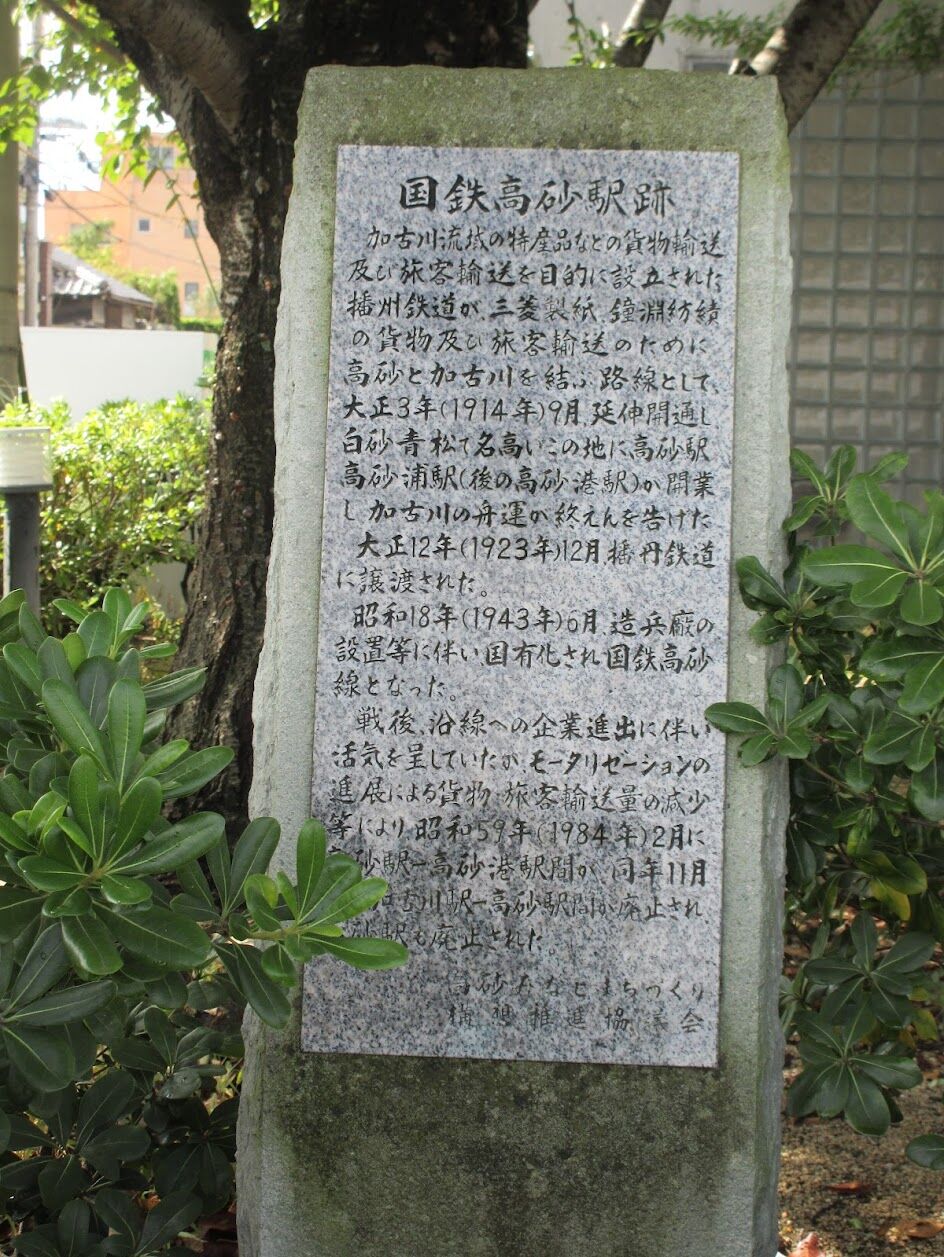 国鉄高砂駅跡
加古川流域の特産品などの貨物輸送
及び旅客輸送を目的に設立された
播州鉄道が、三菱製紙、鐘淵紡績
の貨物及び旅客輸送のために
高砂と加古川を結ぶ路線として、
大正3年(1914年)9月、延伸開通し
白砂青松で名高いこの地に高砂駅
高砂浦駅(後の高砂港駅)が開業
し、加古川の舟運が終えんを告げた
大正12年(1923年)12月、播丹鉄道
に譲渡された。
昭和18年(1943年)6月、造兵廠の
設置等に伴い国有化され国鉄高砂
線となった。
戦後、沿線への企業進出に伴い
活気を呈していたが、モータリゼーションの
進展による貨物、旅客輸送量の減少
等により、昭和59年(1984年)2月に
砂駅ー高砂港駅間が、同年11月
古川駅ー高砂駅間が廃止され
砂駅も廃止された。
高砂みなとまちづくり
構想推進協議会